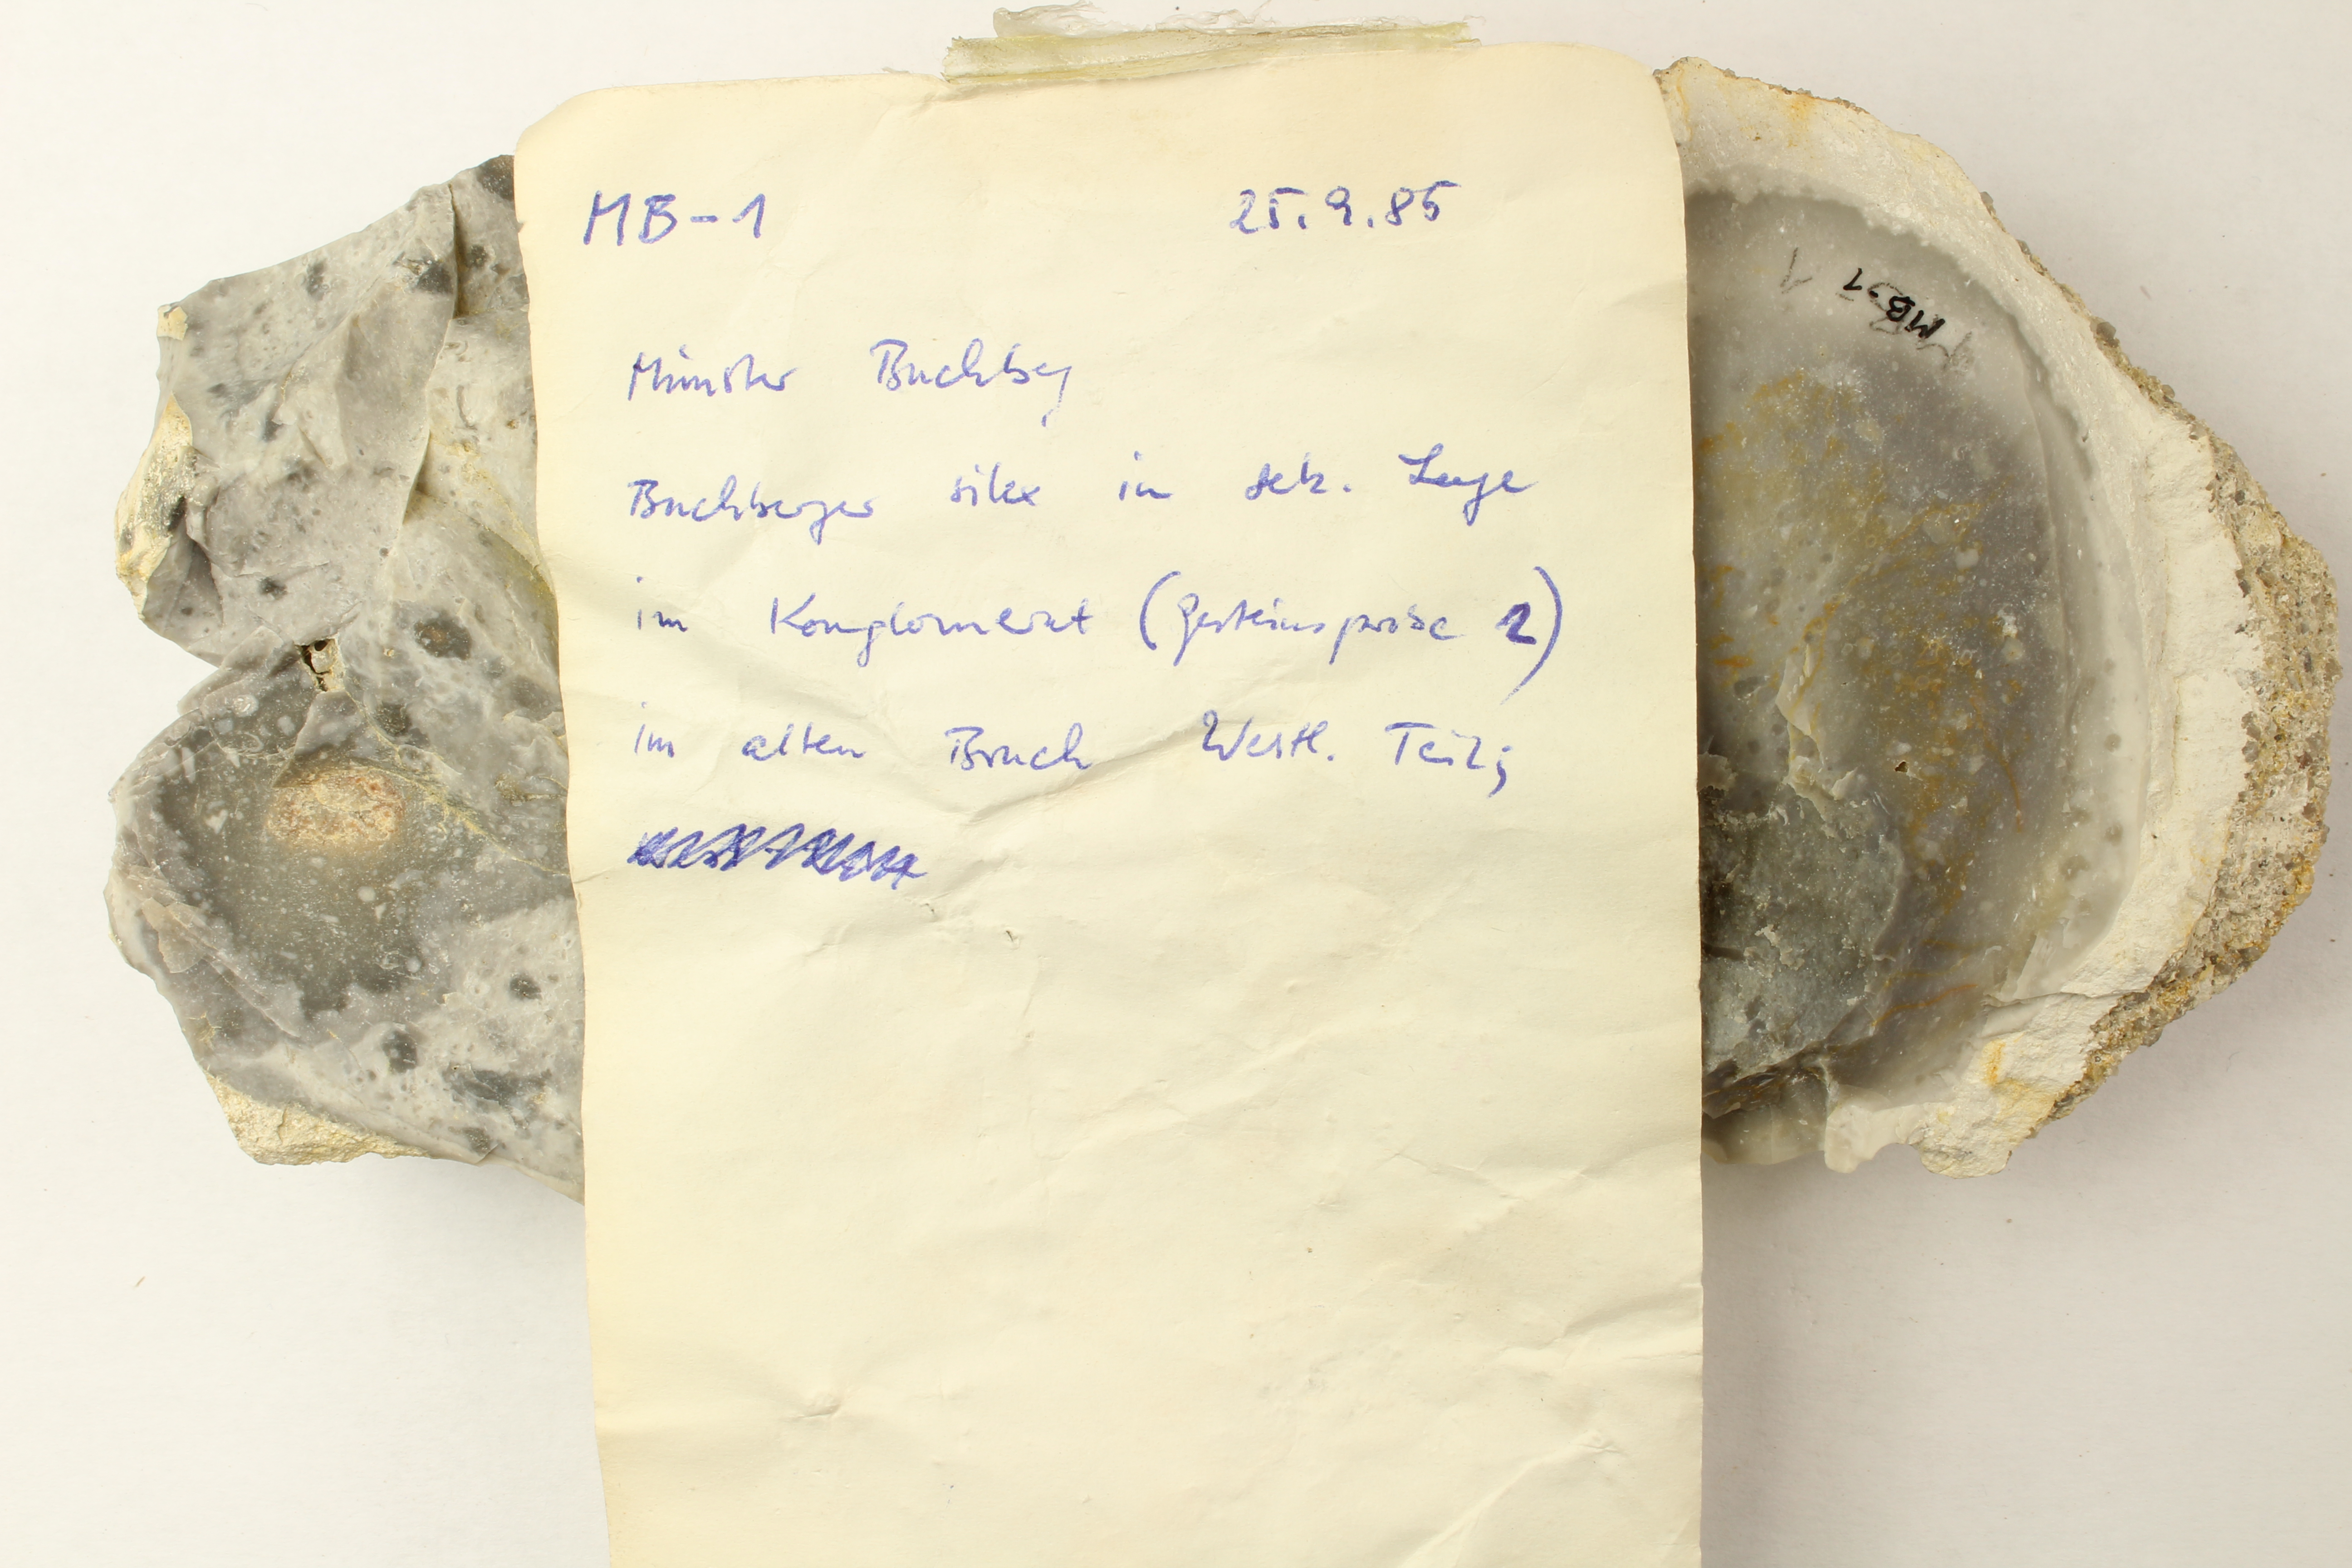 MB-1 25.9.85
Münster Buchberg
Buchberger silex in sek. Lage
im Konglomerat (Gesteinsprobe 2)
im alten Bruch Westl. Teil;
MB-1